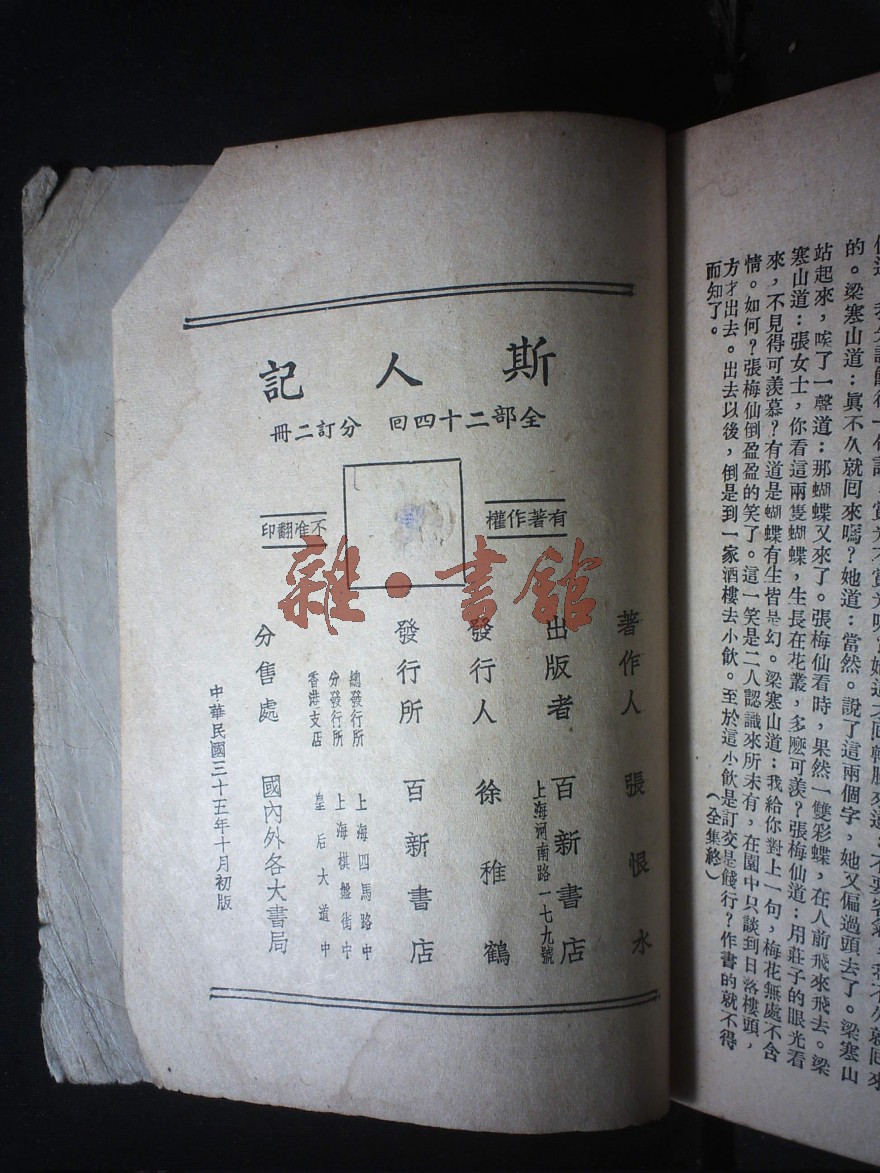 的。梁寒山道：眞不久就囘來嗎？她道：當然。說了這兩個字，她又偏過頭去了。梁寒山
站起來，唉了一聲道：那蝴蝶又來了。張梅仙看時，果然一雙彩蝶，在人前飛來飛去。梁
寒山道：張女士，你看這兩隻蝴蝶，生長在花叢，多麼可羨？張梅仙道：用莊子的眼光看
來，不見得可羨慕？有道是蝴蝶有生皆是幻。梁寒山道：我給你對上一句，梅花無處不含
情。如何？張梅仙倒盈盈的笑了。這一笑是二人認識來所未有，在園中只談到日落樓頭，
方才出去。出去以後，倒是到一家酒樓去小飲。至於這小飲是訂交是餞行？作書的就不得
而知了。
（全集終）
斯人記
全部二十四回 分訂二冊
有著作權
不准翻印
雜·書館
著作人 張恨水
出版者 百新書店
上海河南路一七九號
發行人 徐稚鶴
發行所 百新書店
總發行所 上海四馬路中
分發行所 上海棋盤街中
香港支店 皇后大道中
分售處 國內外各大書局
中華民國三十五年十月初版